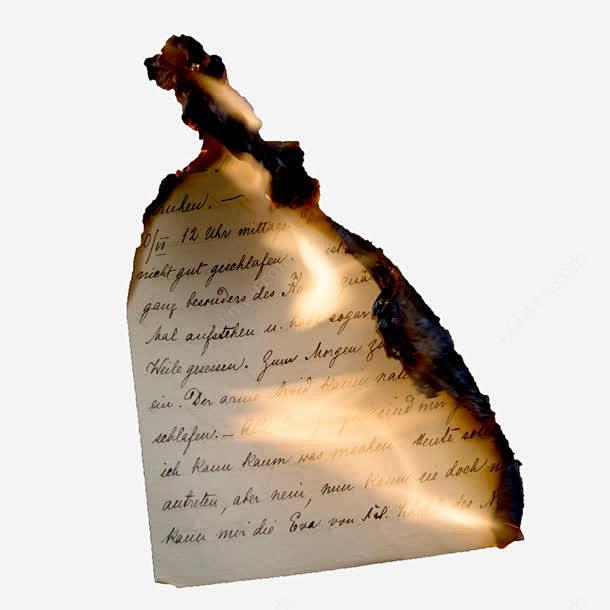 ruhen. —
0/VI 12 Uhr mittags
nicht gut geschlafen. ist
ganz besonders des
Mal aufstehen u. sogar
Weile gesessen. Zum Morgen zu
ein. Der arme kann
schlafen. — sind mir
ich kann kaum was machen. Heute
antreten, aber nein, nun kann sie doch
kann mir die Eva von des